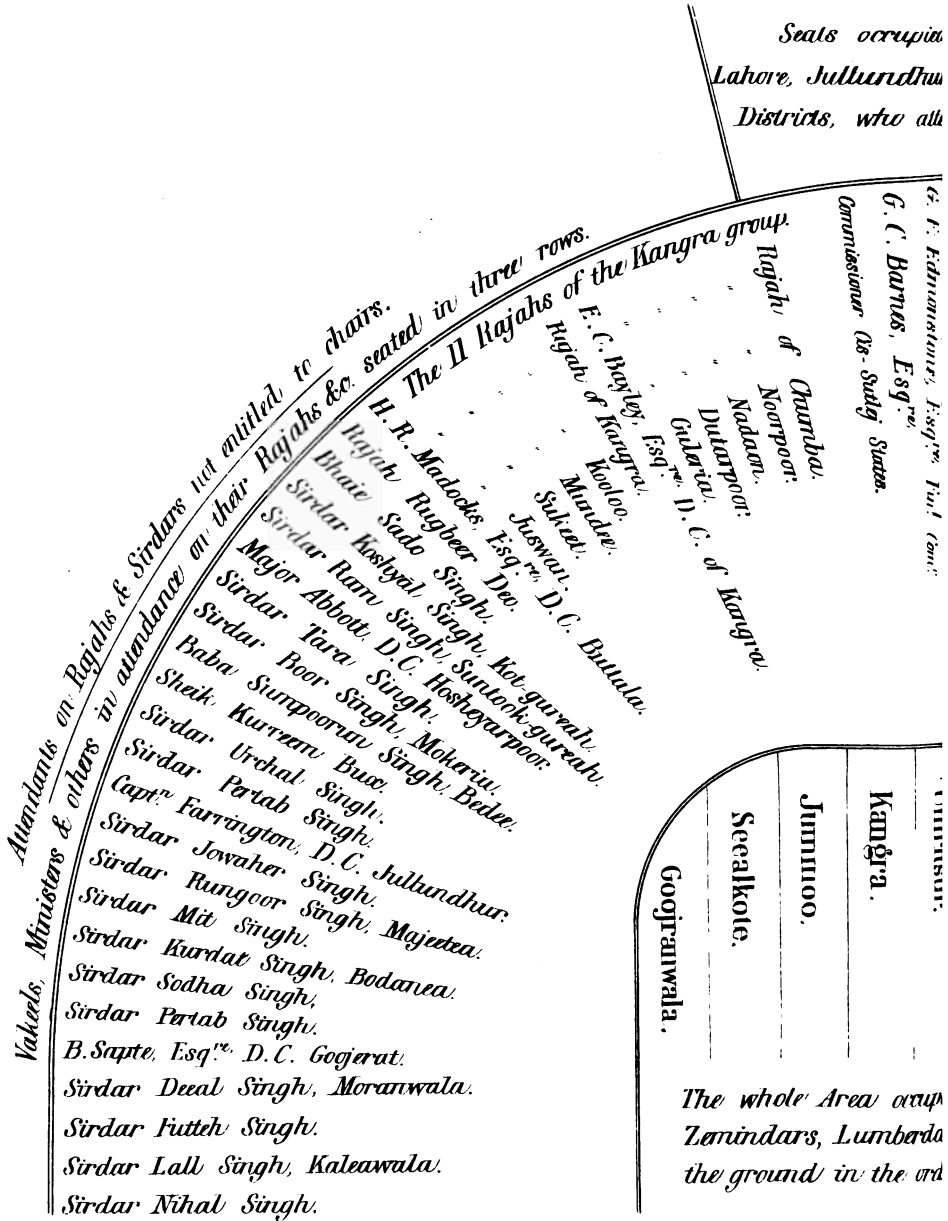 Seats
Lahore,
Districts, who
Attendants on Rajahs & Sirdars not entitled to chairs.
Vakeels, Ministers & others in attendance on their Rajahs &c. seated in three rows.
The 11 Rajahs of the Kangra group.
G. F. Edmonstone, Esqre, Finl Comr
G. C. Barnes, Esqre,
Commissioner Cis-Sutlej States.
Rajah of Chumba.
" " Noorpoor.
" " Nadaon.
" " Dutarpoor.
" " Guleria.
E. C. Bayley, Esqre, D. C. of Kangra.
Rajah of Kangra.
" " Kooloo.
" " Mundee.
" " Sukeet.
" " Juswan.
H. R. Madocks, Esqre, D. C. Buttala.
Rajah Rugbeer Deo.
Bhaie Sado Singh.
Sirdar Koshyal Singh, Kot-gureah.
Sirdar Ram Singh, Suntook-gureah.
Major Abbott, D. C. Hosheyarpoor.
Sirdar Tara Singh.
Sirdar Boor Singh, Mokeriu.
Baba Sumpoorun Singh, Bedee.
Sheik Kurreem Bux.
Sirdar Urchal Singh.
Sirdar Pertab Singh.
Captn Farrington, D. C. Jullundhur.
Sirdar Jowaher Singh.
Sirdar Rungoor Singh, Majeetea.
Sirdar Mit Singh.
Sirdar Kurdat Singh, Bodanea.
Sirdar Sodha Singh,
Sirdar Pertab Singh.
B. Sapte, Esqre, D. C. Goojerat.
Sirdar Deeal Singh, Moranwala.
Sirdar Futteh Singh.
Sirdar Lall Singh, Kaleawala.
Sirdar Nihal Singh.
Goojranwala.
Seealkote.
Jummoo.
Kangra.
The whole Area
Zemindars,
the ground in the